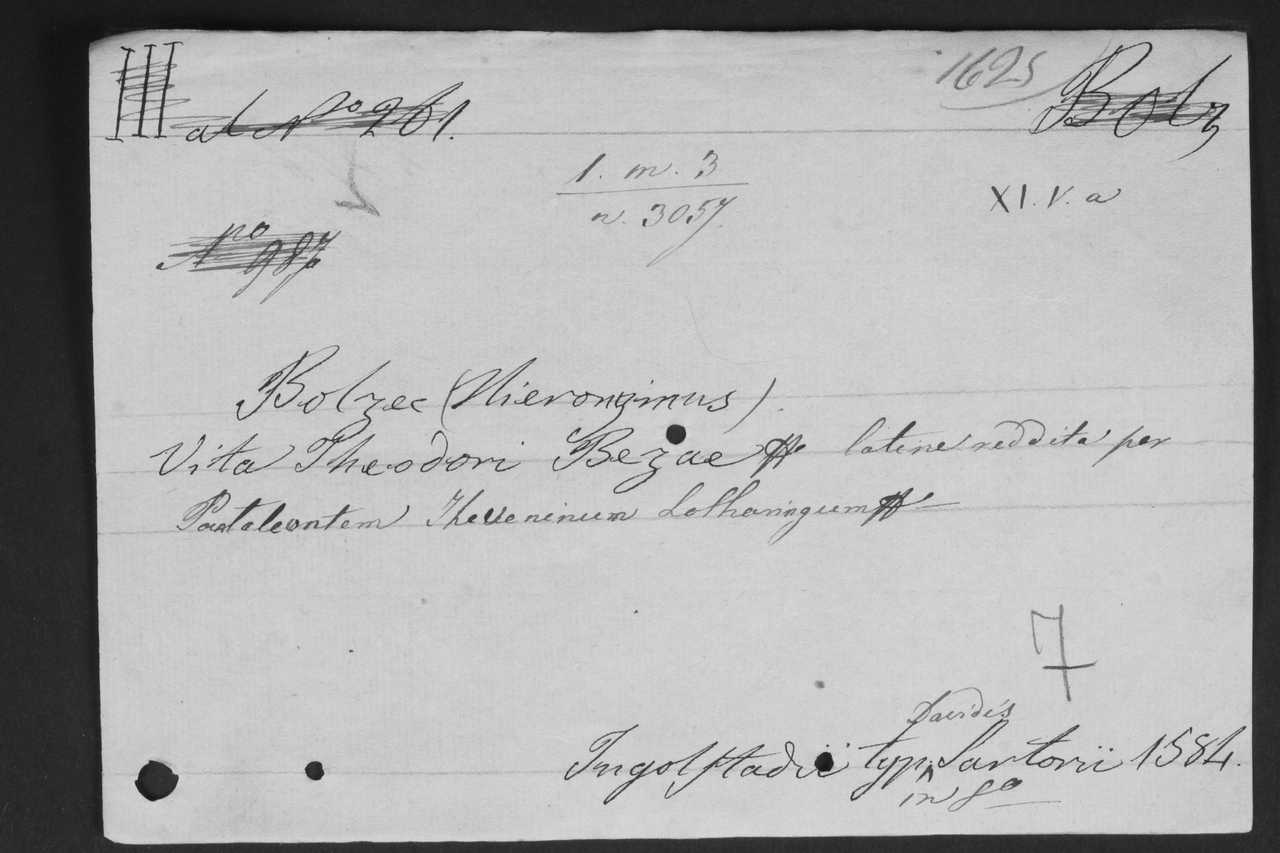 III ad No 261.
1625
Bolz
1. m. 3
n. 3057.
XI. V. a
No 987
Bolzec (Hieronymus).
Vita Theodori Bezae latine reddita per
Pantaleontem Theueninum Lotharingum
7
Davidis
Ingolstadii typ. Sartorii 1584.
in 8o